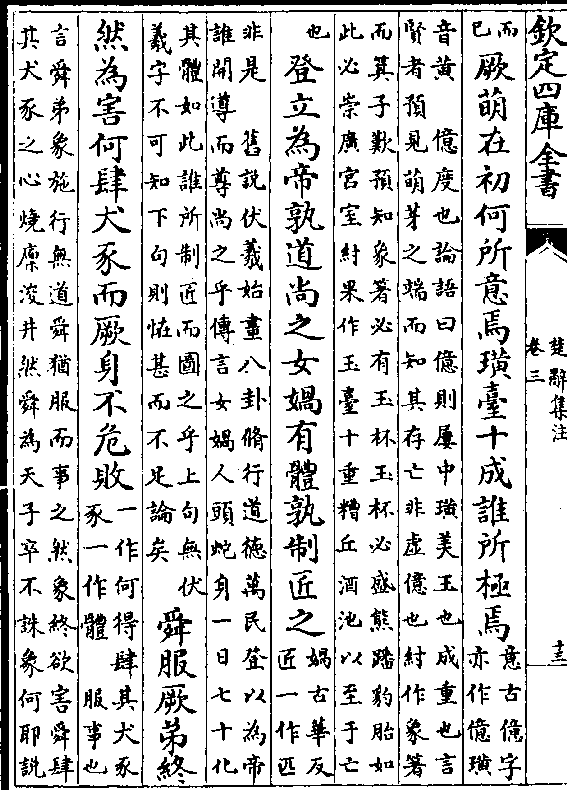 欽定四庫全書
楚辭集注
卷三
十三
而
已
厥萌在初何所意焉璜臺十成誰所極焉
意古億字
亦作億璜
音黃 億度也論語曰億則屢中璜美玉也成重也言
賢者預見萌芽之端而知其存亡非虛億也紂作象著
而箕子歎預知象著必有玉杯玉杯必盛熊蹯豹胎如
此必崇廣宮室紂果作玉臺十重糟丘酒池以至于亡
也
登立為帝孰道尚之女媧有體孰制匠之
媧古華反
匠一作匹
非是 舊說伏羲始畫八卦脩行道德萬民登以為帝
誰開導而尊尚之乎傳言女媧人頭蛇身一日七十化
其體如此誰所制匠而圖之乎上句無伏
羲字不可知下句則怪甚而不足論矣
舜服厥弟終
然為害何肆犬豕而厥身不危敗
一作何得肆其犬豕
豕一作體 服事也
言舜弟象施行無道舜猶服而事之然象終欲害舜肆
其犬豕之心燒廩浚井然舜為天子卒不誅象何耶說